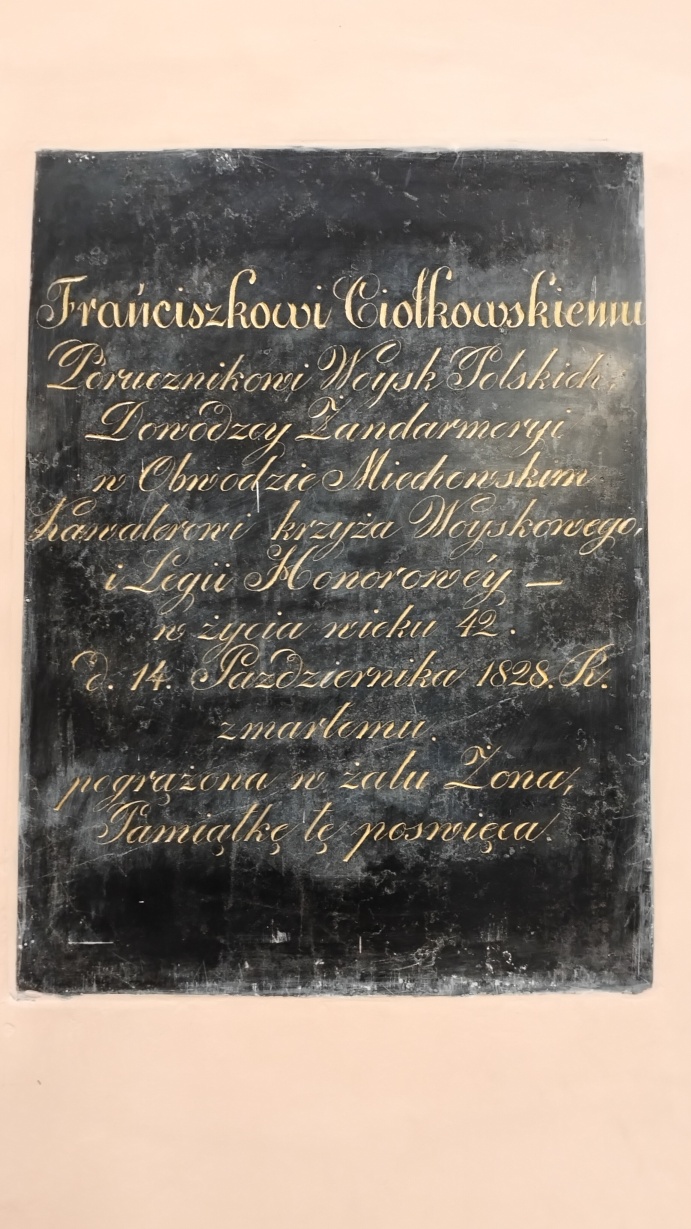 Frańciszkowi Ciołkowskiemu
Porucznikowi Woysk Polskich,
Dowodzcy Żandarmeryi
w Obwodzie Miechowskim
kawalerowi krzyża Woyskowego,
i Legii Honorowéy —
w życia wieku 42.
d. 14. Pazdziernika 1828. R.
zmarłemu.
pogrążona w żalu Żona,
Pamiątkę tę poswięca.